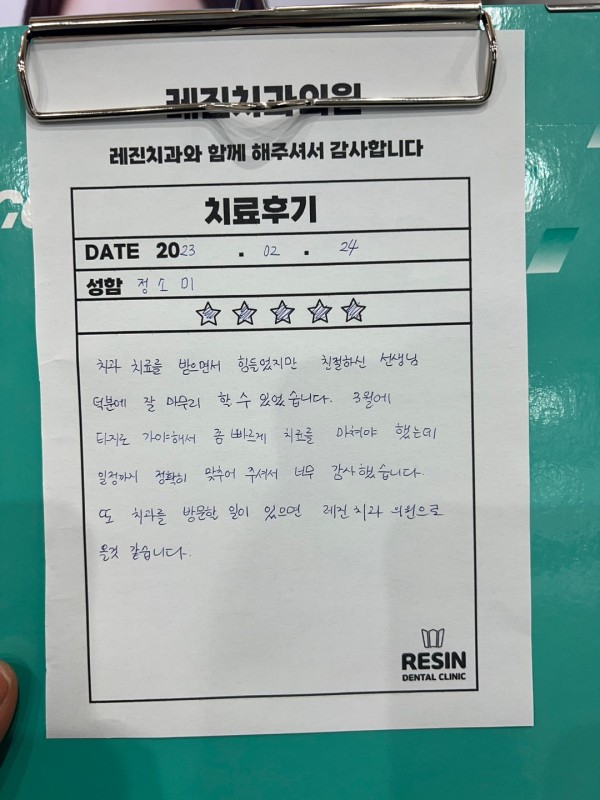 레진치과의원
레진치과와 함께 해주셔서 감사합니다
치료후기
DATE 2023 . 02 . 24
성함 정소미
치과 치료를 받으면서 힘들었지만 친절하신 선생님
덕분에 잘 마무리 할 수 있었습니다. 3월에
타지로 가야해서 좀 빠르게 치료를 마쳐야 했는데
일정까지 정확히 맞추어 주셔서 너무 감사했습니다.
또 치과를 방문할 일이 있으면 레진 치과 의원으로
올것 같습니다.
RESIN
DENTAL CLINIC